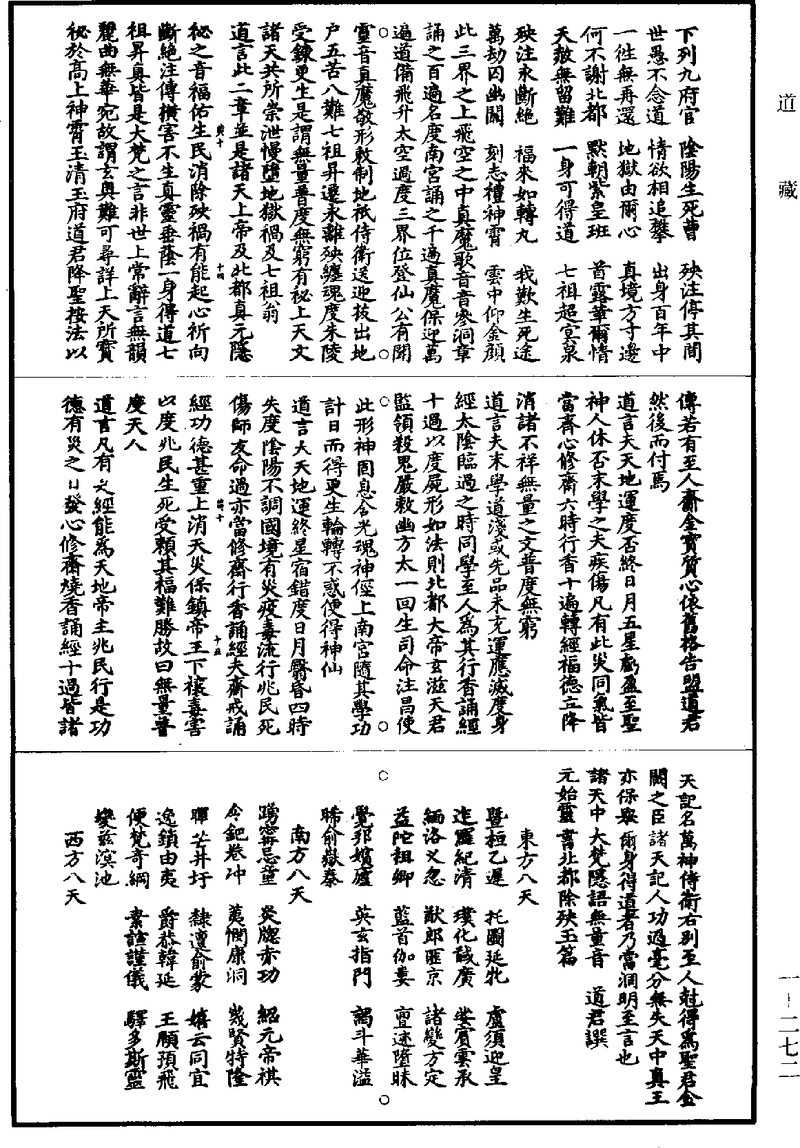 道藏
下列九府官　陰陽生死曹　殃注停其間
世愚不念道　情欲相追攀　出身百年中
一往無再還　地獄由爾心　真境方寸邊
何不謝北都　默朝紫皇班　首露華爾情
天赦無留難　一身可得道　七祖超冥泉
殃注永斷絕　福來如轉丸　我歎生死途
萬劫因幽關　刻志禮神霄　雲中仰金顏
此三界之上飛空之中真魔歌音音參洞章
誦之百遍名度南宮誦之千遍真魔保迎萬
遍道備飛升太空過度三界位登仙公有聞
靈音真魔敬形敕制地祇侍衛送迎拔出地
户五苦八難七祖昇遷永離殃纏魂度朱陵
受鍊更生是謂無量普度無窮有祕上天文
諸天共所崇泄慢墮地獄禍及七祖翁
道言此二章並是諸天上帝及北都真元隱
祕之音福佑生民消除殃禍有能起心祈向
斷絕注傳橫害不生真靈垂蔭一身得道七
祖昇真皆是大梵之言非世上常辭言無韻
麗曲無華宛故謂玄奥難可尋詳上天所寶
祕於高上神霄玉清玉府道君降聖按法以
傳若有至人齋金寶質心依舊格告盟道君
然後而付焉
道言夫天地運度否終日月五星虧盈至聖
神人休否末學之夫疾傷凡有此災同氣皆
當齋心修齋六時行香十遍轉經福德立降
消諸不祥無量之文普度無窮
道言夫末學道淺或先品未充運應滅度身
經太陰臨過之時同學至人爲其行香誦經
十過以度屍形如法則北都大帝玄滋天君
監領殺鬼嚴敕幽方太一回生司命注昌使
此形神固息合光魂神徑上南宮隨其學功
計日而得更生輪轉不惑便得神仙
道言夫天地運終星宿錯度日月翳昏四時
失度陰陽不調國境有災疫毒流行兆民死
傷師友命過亦當修齋行香誦經夫齋戒誦
經功德甚重上消天災保鎮帝王下禳毒害
以度兆民生死受賴其福難勝故曰無量普
度天人
道言凡有此經能爲天地帝主兆民行是功
德有災之日發心修齋燒香誦經十過皆諸
天記名萬神侍衛右别至人尅得爲聖君金
闕之臣諸天記人功過毫分無失天中真王
亦保舉爾身得道者乃當洞明至言也
諸天中大梵隱語無量音　道君譔
元始靈書北都除殃玉篇
東方八天
曁桓乙遲　托圖延牝　盧須迎皇
連羅紀清　璞化誠廣　婁賓雲承
緬洛义忽　猷郎匪京　諸變方定
益陀祖卿　藍首伽婁　亶迹墮昧
覺邦嬪廬　英玄指門　謁斗華溢
晞俞嶽泰
南方八天
踴審忌童　炎牎赤功　紹元帝祺
今鈀卷冲　萬惘康洞　幾賢特隆
暉芒井圩　隸邅俞蒙　嬉云同宜
逸鎖由夷　爵恭韓延　王願預飛
便梵奇綱　素該謹儀　驛多斯靈
變兹溟池
西方八天
一－二七二